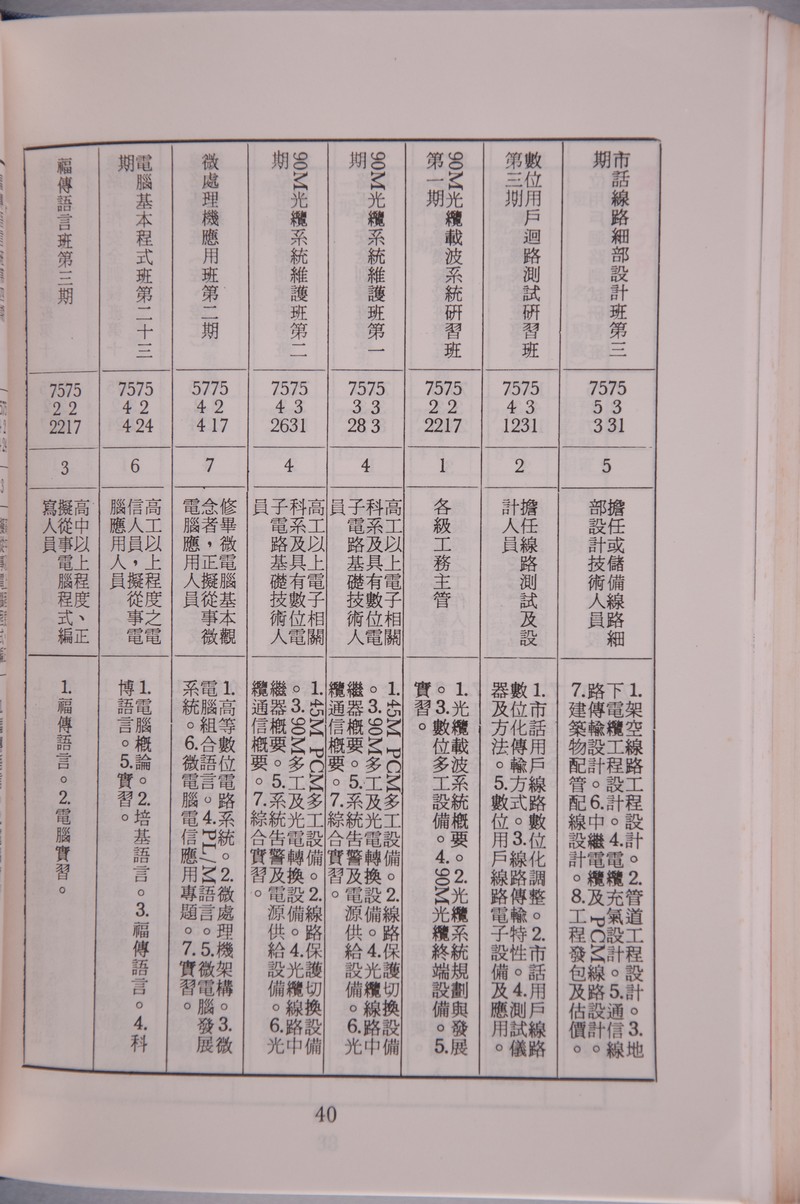 市話線路細部設計班第三
期
7575
5 3
3 31
5
擔任或儲備線路細
部設計技術人員
1.架空線路工程設計。2.管道工程設計。3.地
下電纜工程設計。4.電纜充氣設計。5.通信線
路傳輸設計。6.中繼電纜及PCM線路設計。
7.建築物配管配線設計。8.工程發包及估價。
數位用戶迴路測試研習班
第三期
7575
4 3
1231
2
擔任線路測試及設
計人員
1.市話用戶線路數位化調整。2.市話用戶線路
數位傳輸方式。3.線路傳輸特性。4.測試儀
器及方法。5.數位用戶線路電子設備及應用。
90M光纜載波系統研習班
第一期
7575
2 2
2217
1
各級工務主管
1.光纜載波系統概要。2.光纜系統規劃與發展
。3.數位多工設備。4.90M光纜終端設備。5.
實習。
90M光纜系統維護班第一
期
7575
3 3
28 3
4
高工以上電子相關
科系及具有數位電
子電路基礎技術人
員
1.45M PCM多工設備。2.線路保護切換設備
。3.90M多工及光電轉換設備。4.光纜線路中
繼器概要。5.系統告警及電源供給設備。6.光
纜通信概要。7.綜合實習。
90M光纜系統維護班第二
期
7575
4 3
2631
4
高工以上電子相關
科系及具有數位電
子電路基礎技術人
員
1.45M PCM多工設備。2.線路保護切換設備
。3.90M多工及光電轉換設備。4.光纜線路中
繼器概要。5.系統告警及電源供給設備。6.光
纜通信概要。7.綜合實習。
微處理機應用班第二期
5775
4 2
4 17
7
修畢微電腦基本觀
念者，正擬從事微
電腦應用人員
1.高等數位電路系統。2.微處理機架構。3.微
電腦組合語言。4.PL/M語言。5.微電腦發展
系統。6.微電腦電信應用專題。7.實習。
電腦基本程式班第二十三
期
7575
4 2
4 24
6
高工以上程度之電
信人員，擬從事電
腦應用人員
1.電腦概論。2.培基語言。3.福傳語言。4.科
博語言。5.實習。
福傳語言班第三期
7575
2 2
2217
3
高中以上程度、正
擬從事電腦程式編
寫人員
1.福傳語言。2.電腦實習。
40